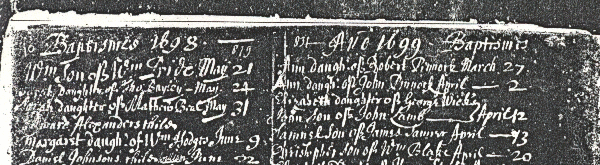 Baptismes 1698
Wm Son of Wm Pride May 21
daughter of Tho Bayley May 24
Sarah daughter of Mathew May 31
Edward Alexanders child
Margaret daugh. of Wm Hodges June 9
Daniel Johnsons child June 22
Ano 1699 Baptismes
Ann daugh. of Robert March 27
Ann daugh. of John Pinnock April 2
Elizabeth daughter of George Wicks
John Son of John Lamb April 12
Samuel Son of James April 13
Christopher Son of Wm Blake April 20